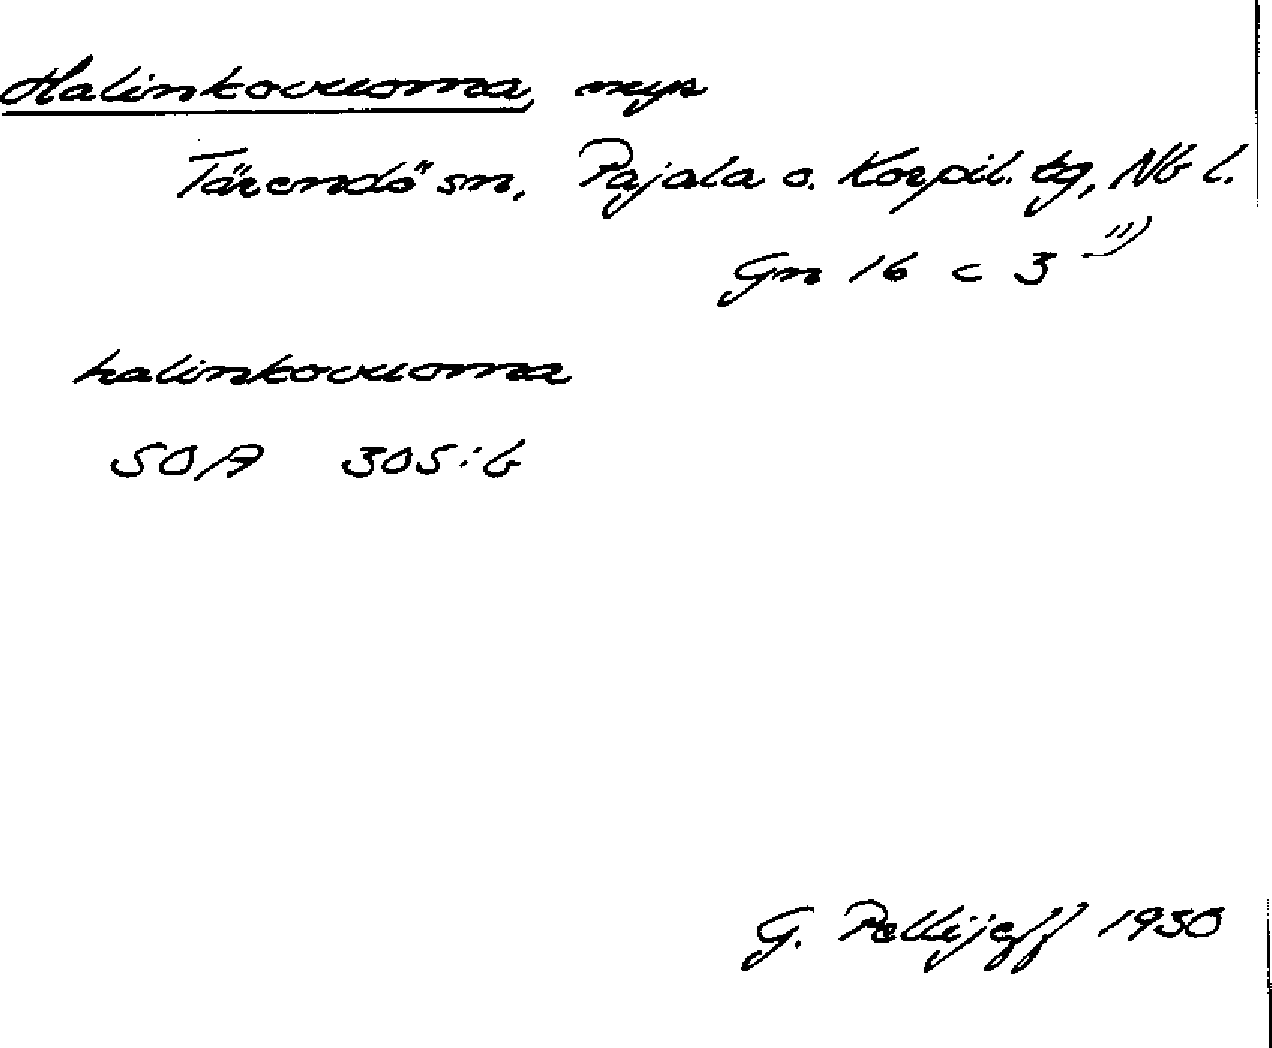 Halinkovuoma, myr
Tärendö sn, Pajala o. Korpil. tg, Nb l.
Gn 16 c 3 ")
halinkovuoma
SOA 305:6
G. Pellijeff 1950